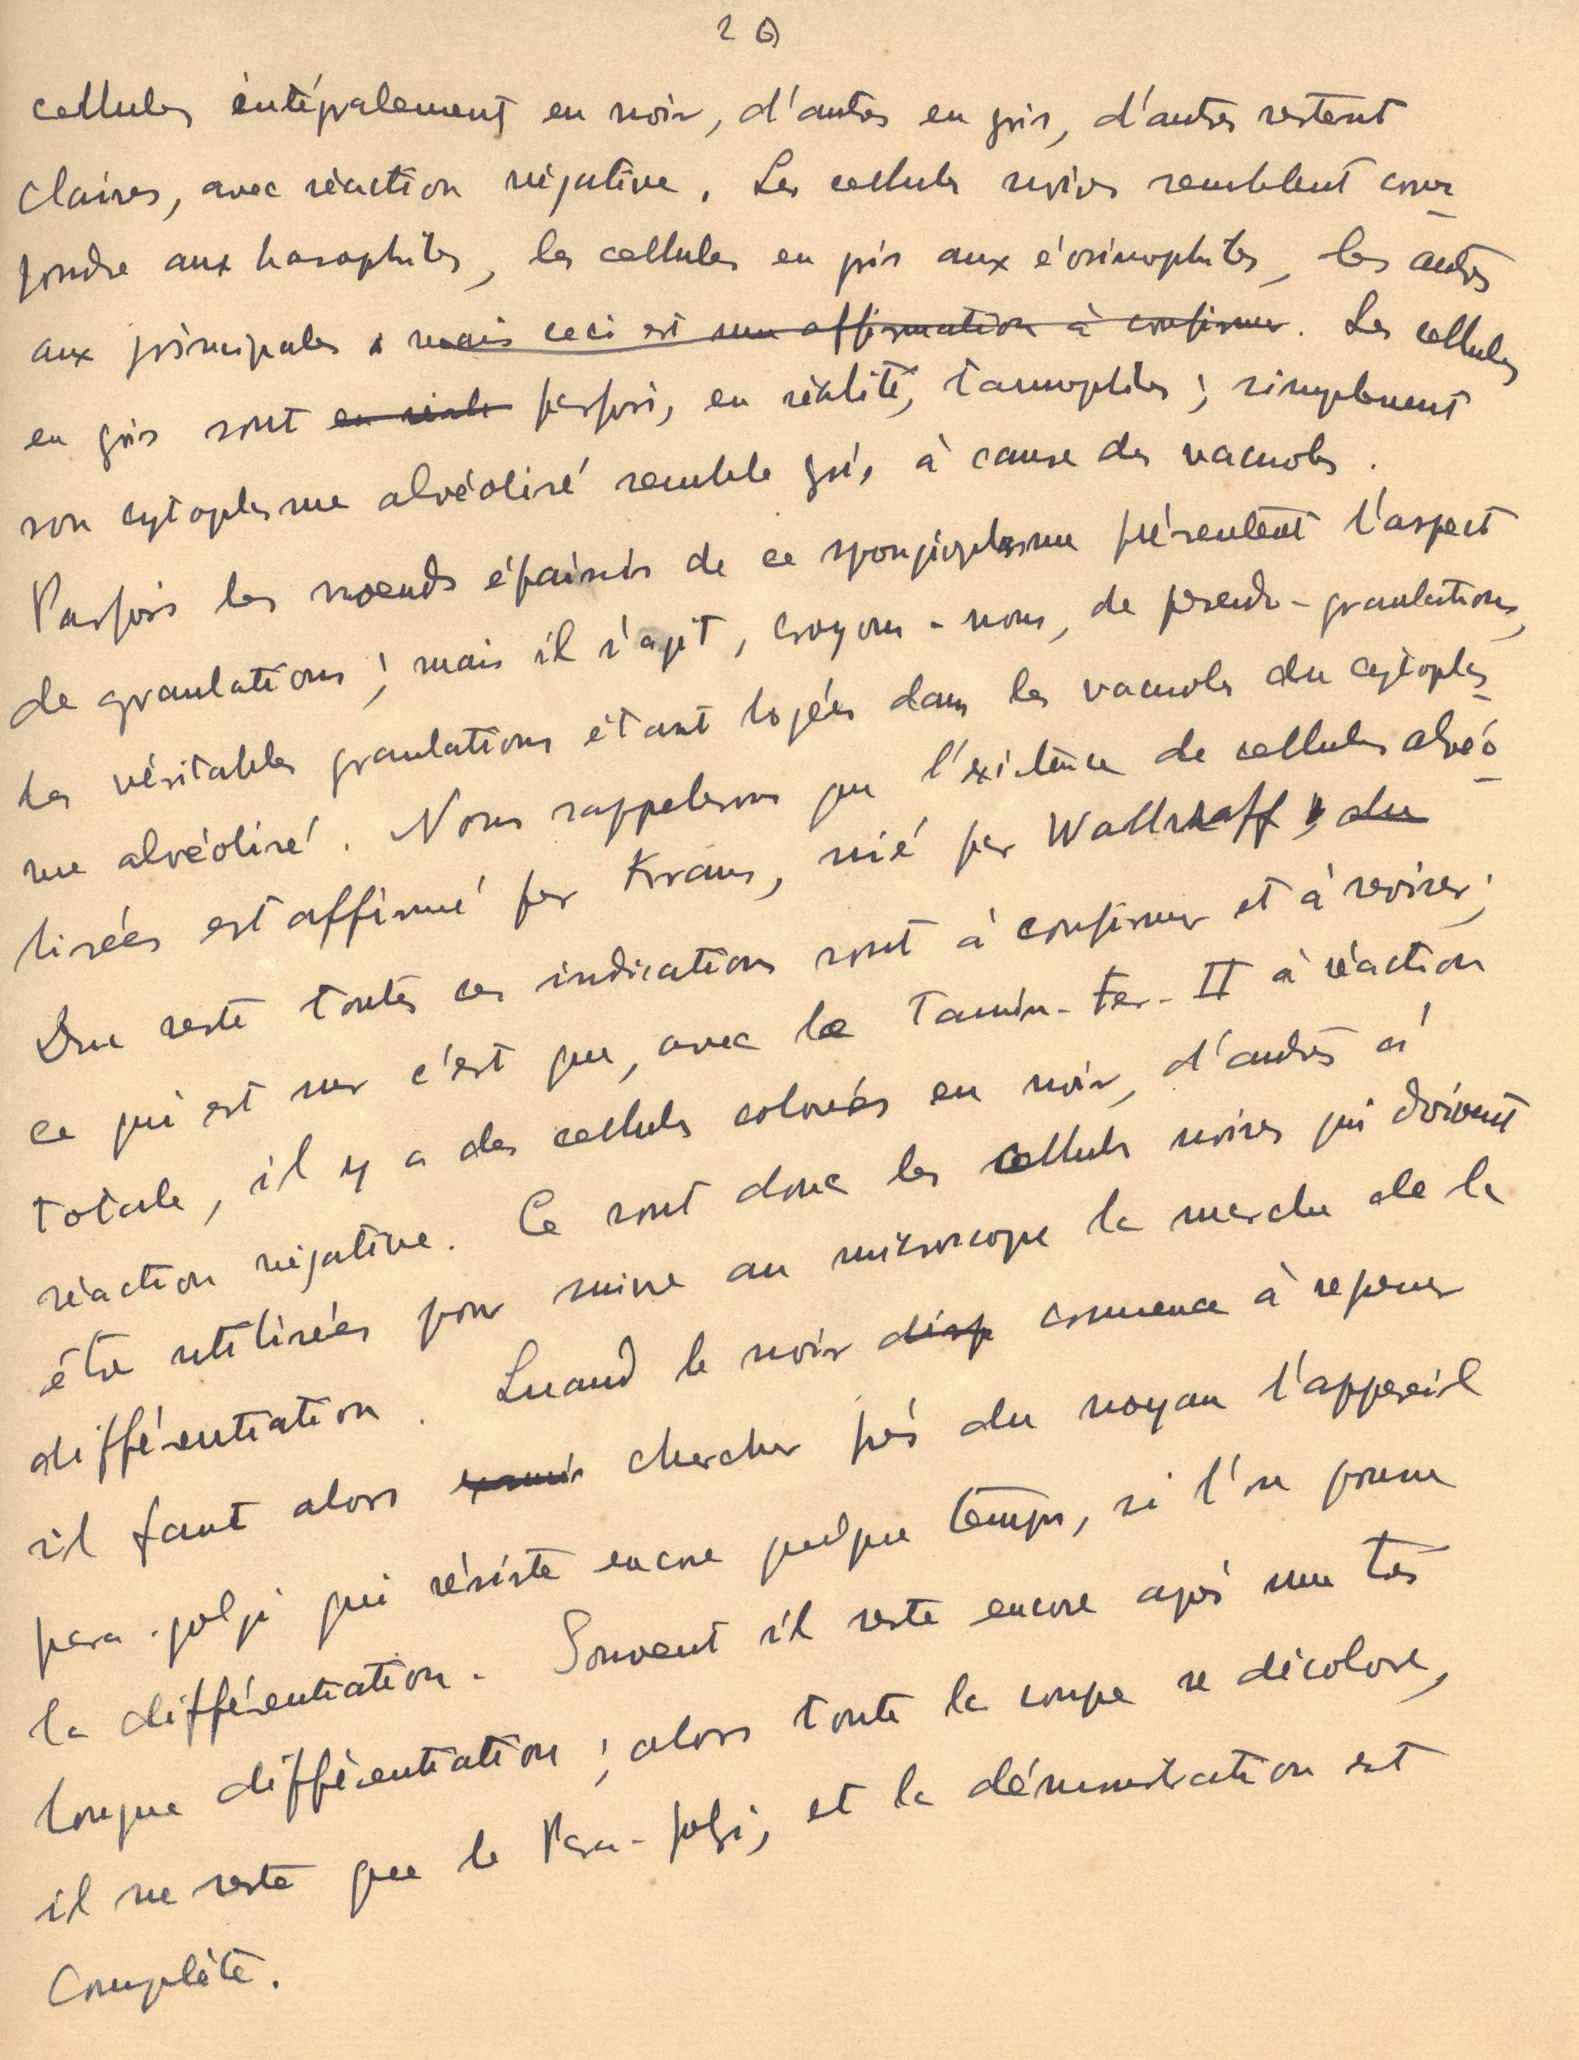 20
cellules intégralement en noir, d'autres en gris, d'autres restent
claires, avec réaction négative. Les cellules noires semblent corres
pondre aux basophiles, les cellules en gris aux éosinophiles, les autres
aux principales, mais ceci est une affirmation à confirmer. Les cellules
en gris sont en réali parfois, en réalité, tannophiles; simplement
son cytoplasme alvéolisé semble gris à cause des vacuoles.
Parfois les noeuds épaissis de ce spongioplasme présentent l'aspect
de granulations; mais il s'agit, croyons-nous, de pseudo-granulations,
les véritables granulations étant logées dans les vacuoles du cytoplas
me alvéolisé. Nous rappelerons que l'existence de cellules alvéo
lisées est affirmé par Kraus, nié par Wallraff, du
Du reste toutes ces indications sont à confirmer et à reviser;
ce qui est sur c'est que, avec le Tannin-Fer-II à réaction
totale, il y a des cellules colorées en noir, d'autres à
réaction négative. Ce sont donc les cellules noires qui doivent
être utilisées pour suivre au microscope la marche de la
différentiation. Quand le noir disp commence à reperer
il faut alors chercher près du noyau l'appareil
para-golgi qui résiste encore quelque temps, si l'on pousse
la différentiation. Souvent il reste encore après une très
longue différentiation; alors toute la coupe se décolore,
il ne reste que le Para-golgi, et la démonstration est
Complète.